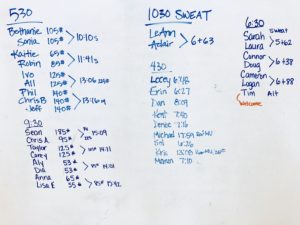 530
Bethanie 105#
Sonia 105# > 10:10s
Kaitie 65#
Robin 85# > 11:41s
Ivo 125#
Ali 125# > 13:06
Phil 140#
Chris B 140# > 13:16
Jeff 140#
9:30
Sean 185#
Chris A 95# > 15:09
Taylor 125#
Carey 125# > 14:11
Aly 53#
Dia 53# > 14:01
Anna 65#
Lisa E 55# > 15:42
1030 SWEAT
LeAnn
Adair > 6+63
430
Lacey 6:42
Erin 6:27
Dan 8:09
Kent 7:40
Denise 7:16
Michael 17:59
6:26
Kris 13:08
Maren 7:10
6:30
Sweat
Sarah
Laura > 5+62
Connor
Doug > 6+38
Cameron
Logan > 6+88
Tim Alt
Welcome